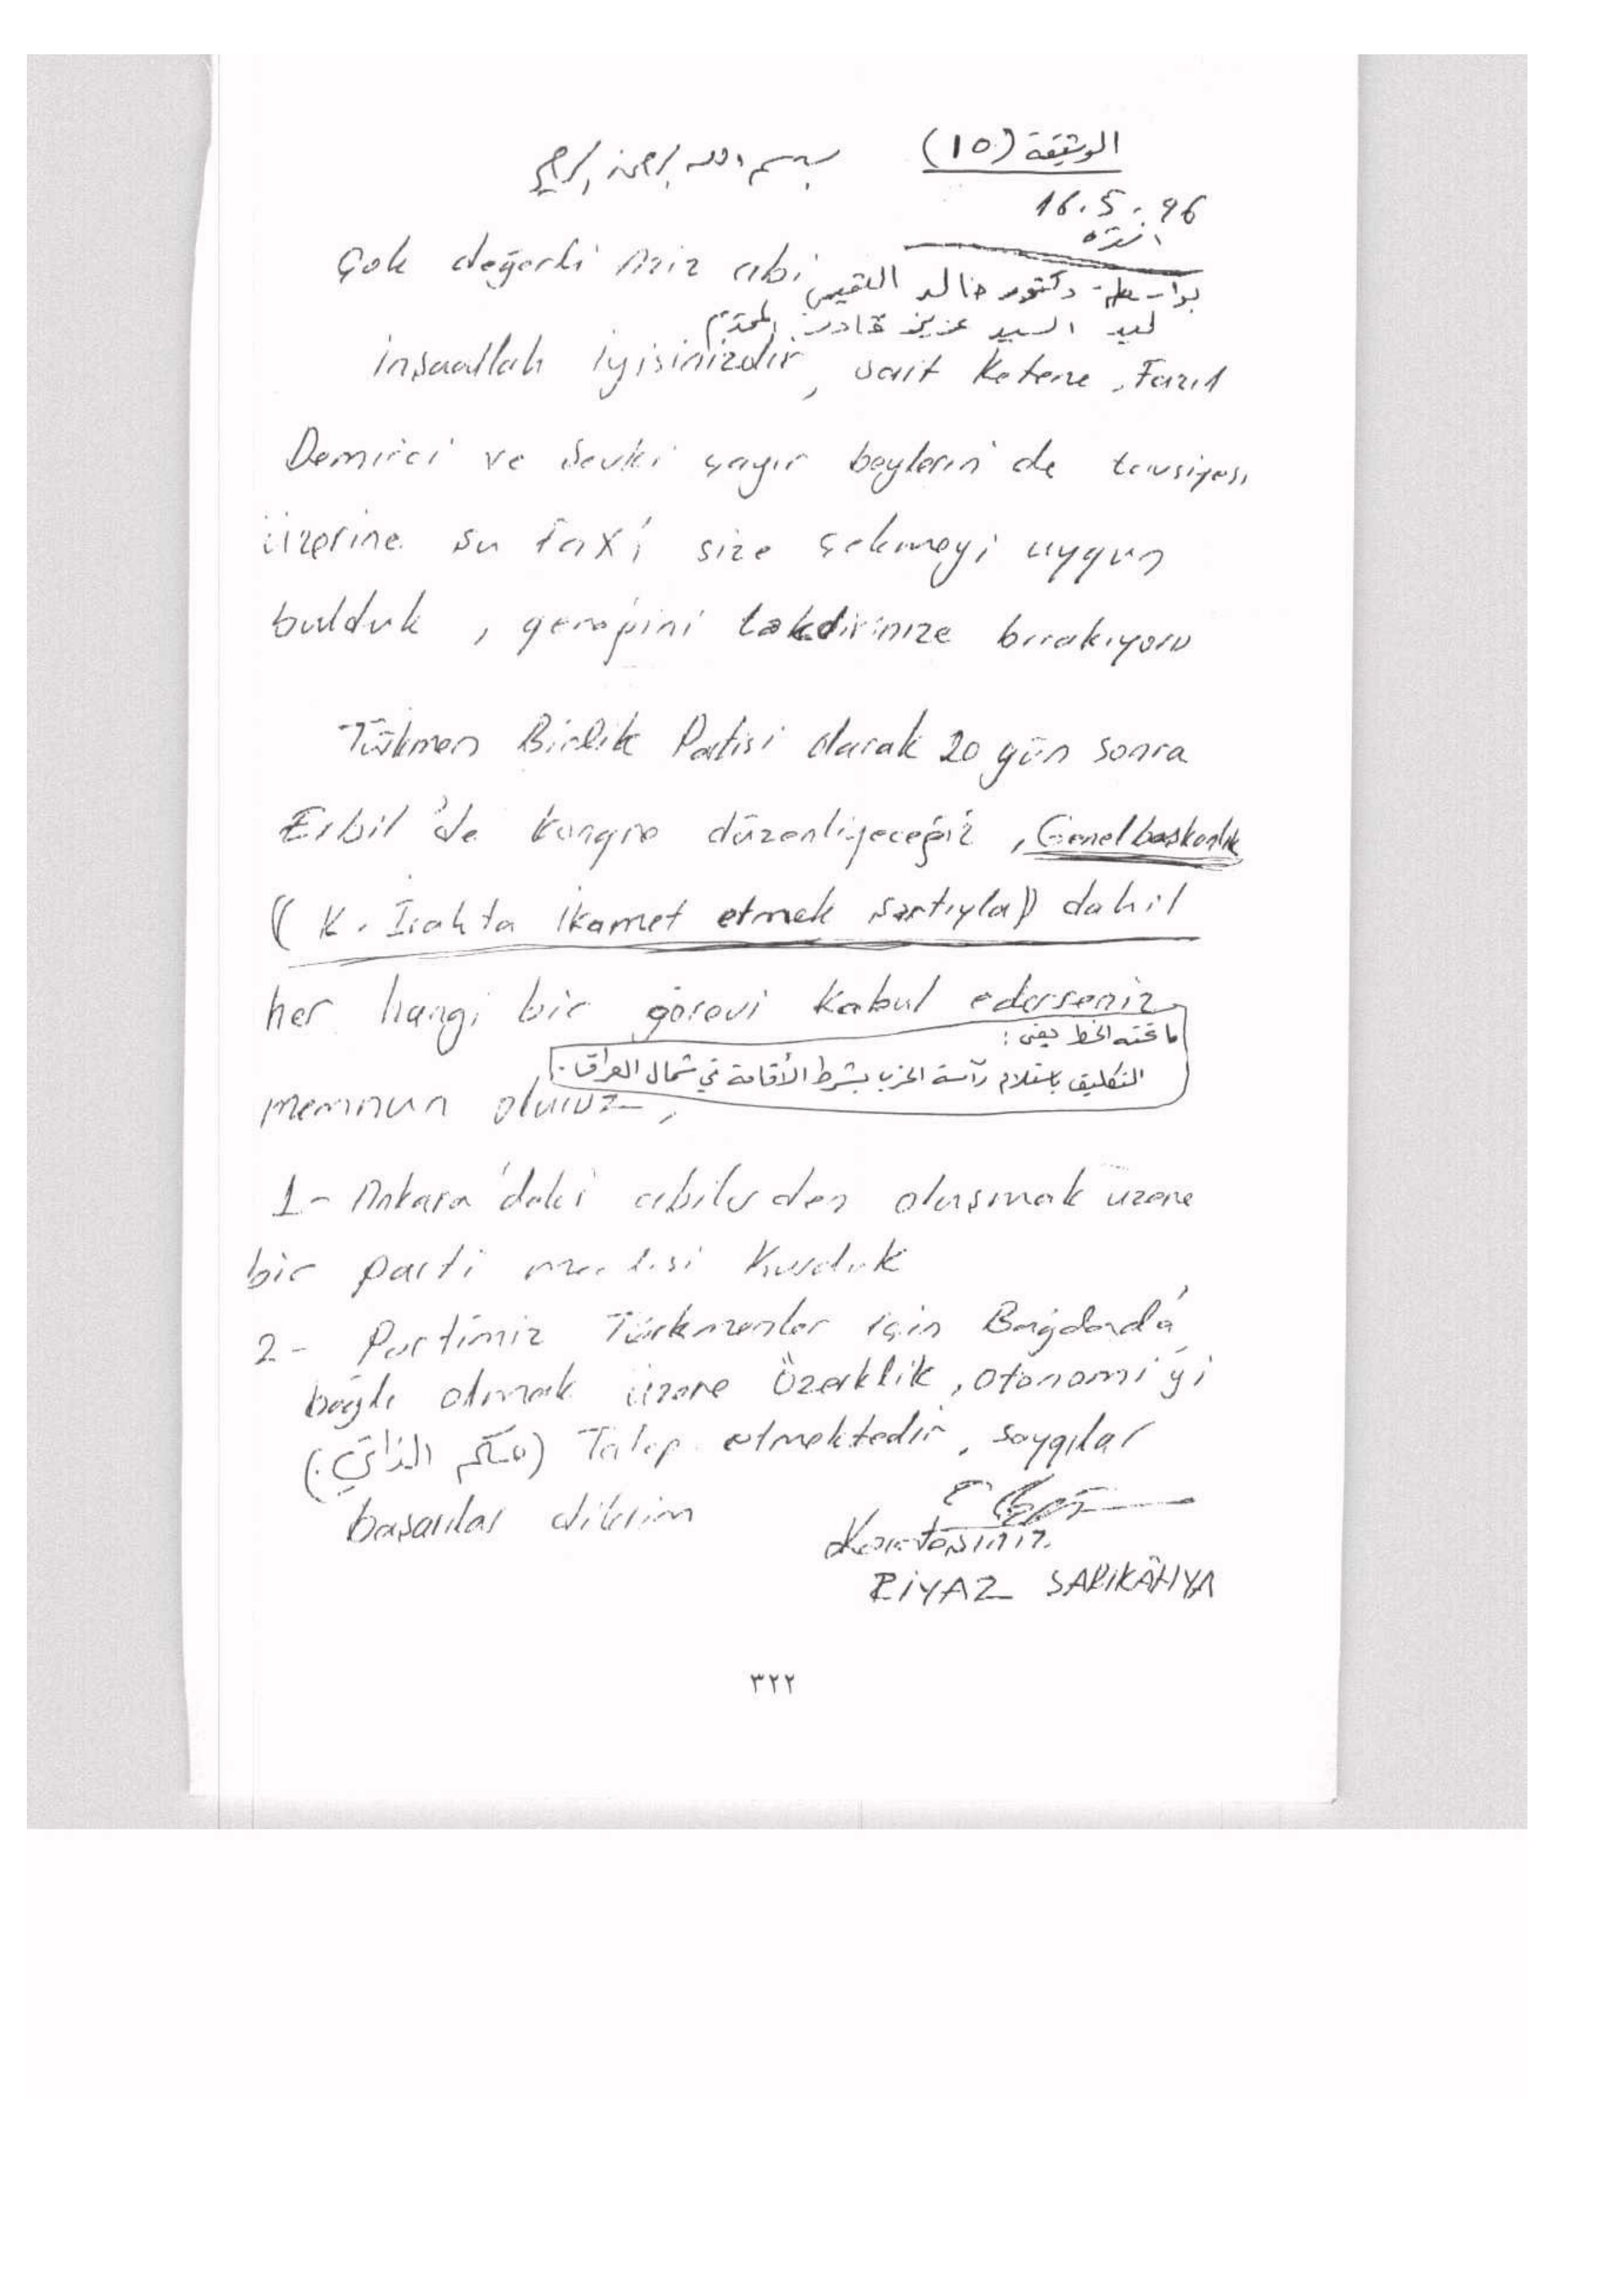 الوثيقة (١٥)
بسم الله الرحمن الرحيم
16.5.96
انقره
Çok değerli Aziz abi
بواسطة دكتور خالد
ليد السيد عزيز قادر المحترم
inşaallah iyisinizdir, sait Ketene, Fazıl
Demirci ve Sevki çayır beylerin de tavsiyesi
üzerine su fax'i size çekmeyi uygun
bulduk, gereğini takdirinize bırakıyoru
Türkmen Birlik Partisi olarak 20 gün sonra
Erbil'de Kongre düzenliyeceğiz, Genel baskanlık
(( K. Irakta ikamet etmek sartıyla)) dahil
her hangi bir görevi kabul ederseniz
ما تحته الخط يعني:
التكليف باستلام رآسة الحزب بشرط الأقامة في شمال العراق.
memnun oluruz,
1- Ankara'daki abilerden oluşmak üzere
bir parti meclisi Kurduk
2- Partimiz Türkmenler için Bağdad'a
bağlı olmak üzere Özerklik, otonomi'yi
(حكم الذاتي) Talep etmektedir, saygılar
başarılar dilerim
Kardeşiniz
RİYAZ SARIKÂHYA
٣٢٢